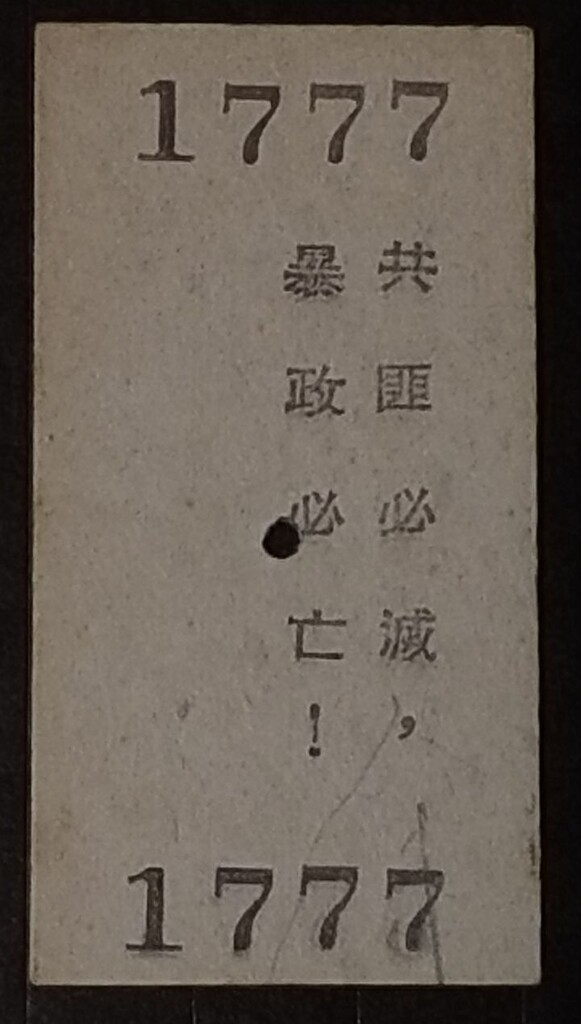 1777
共匪必滅，
暴政必亡！
1777